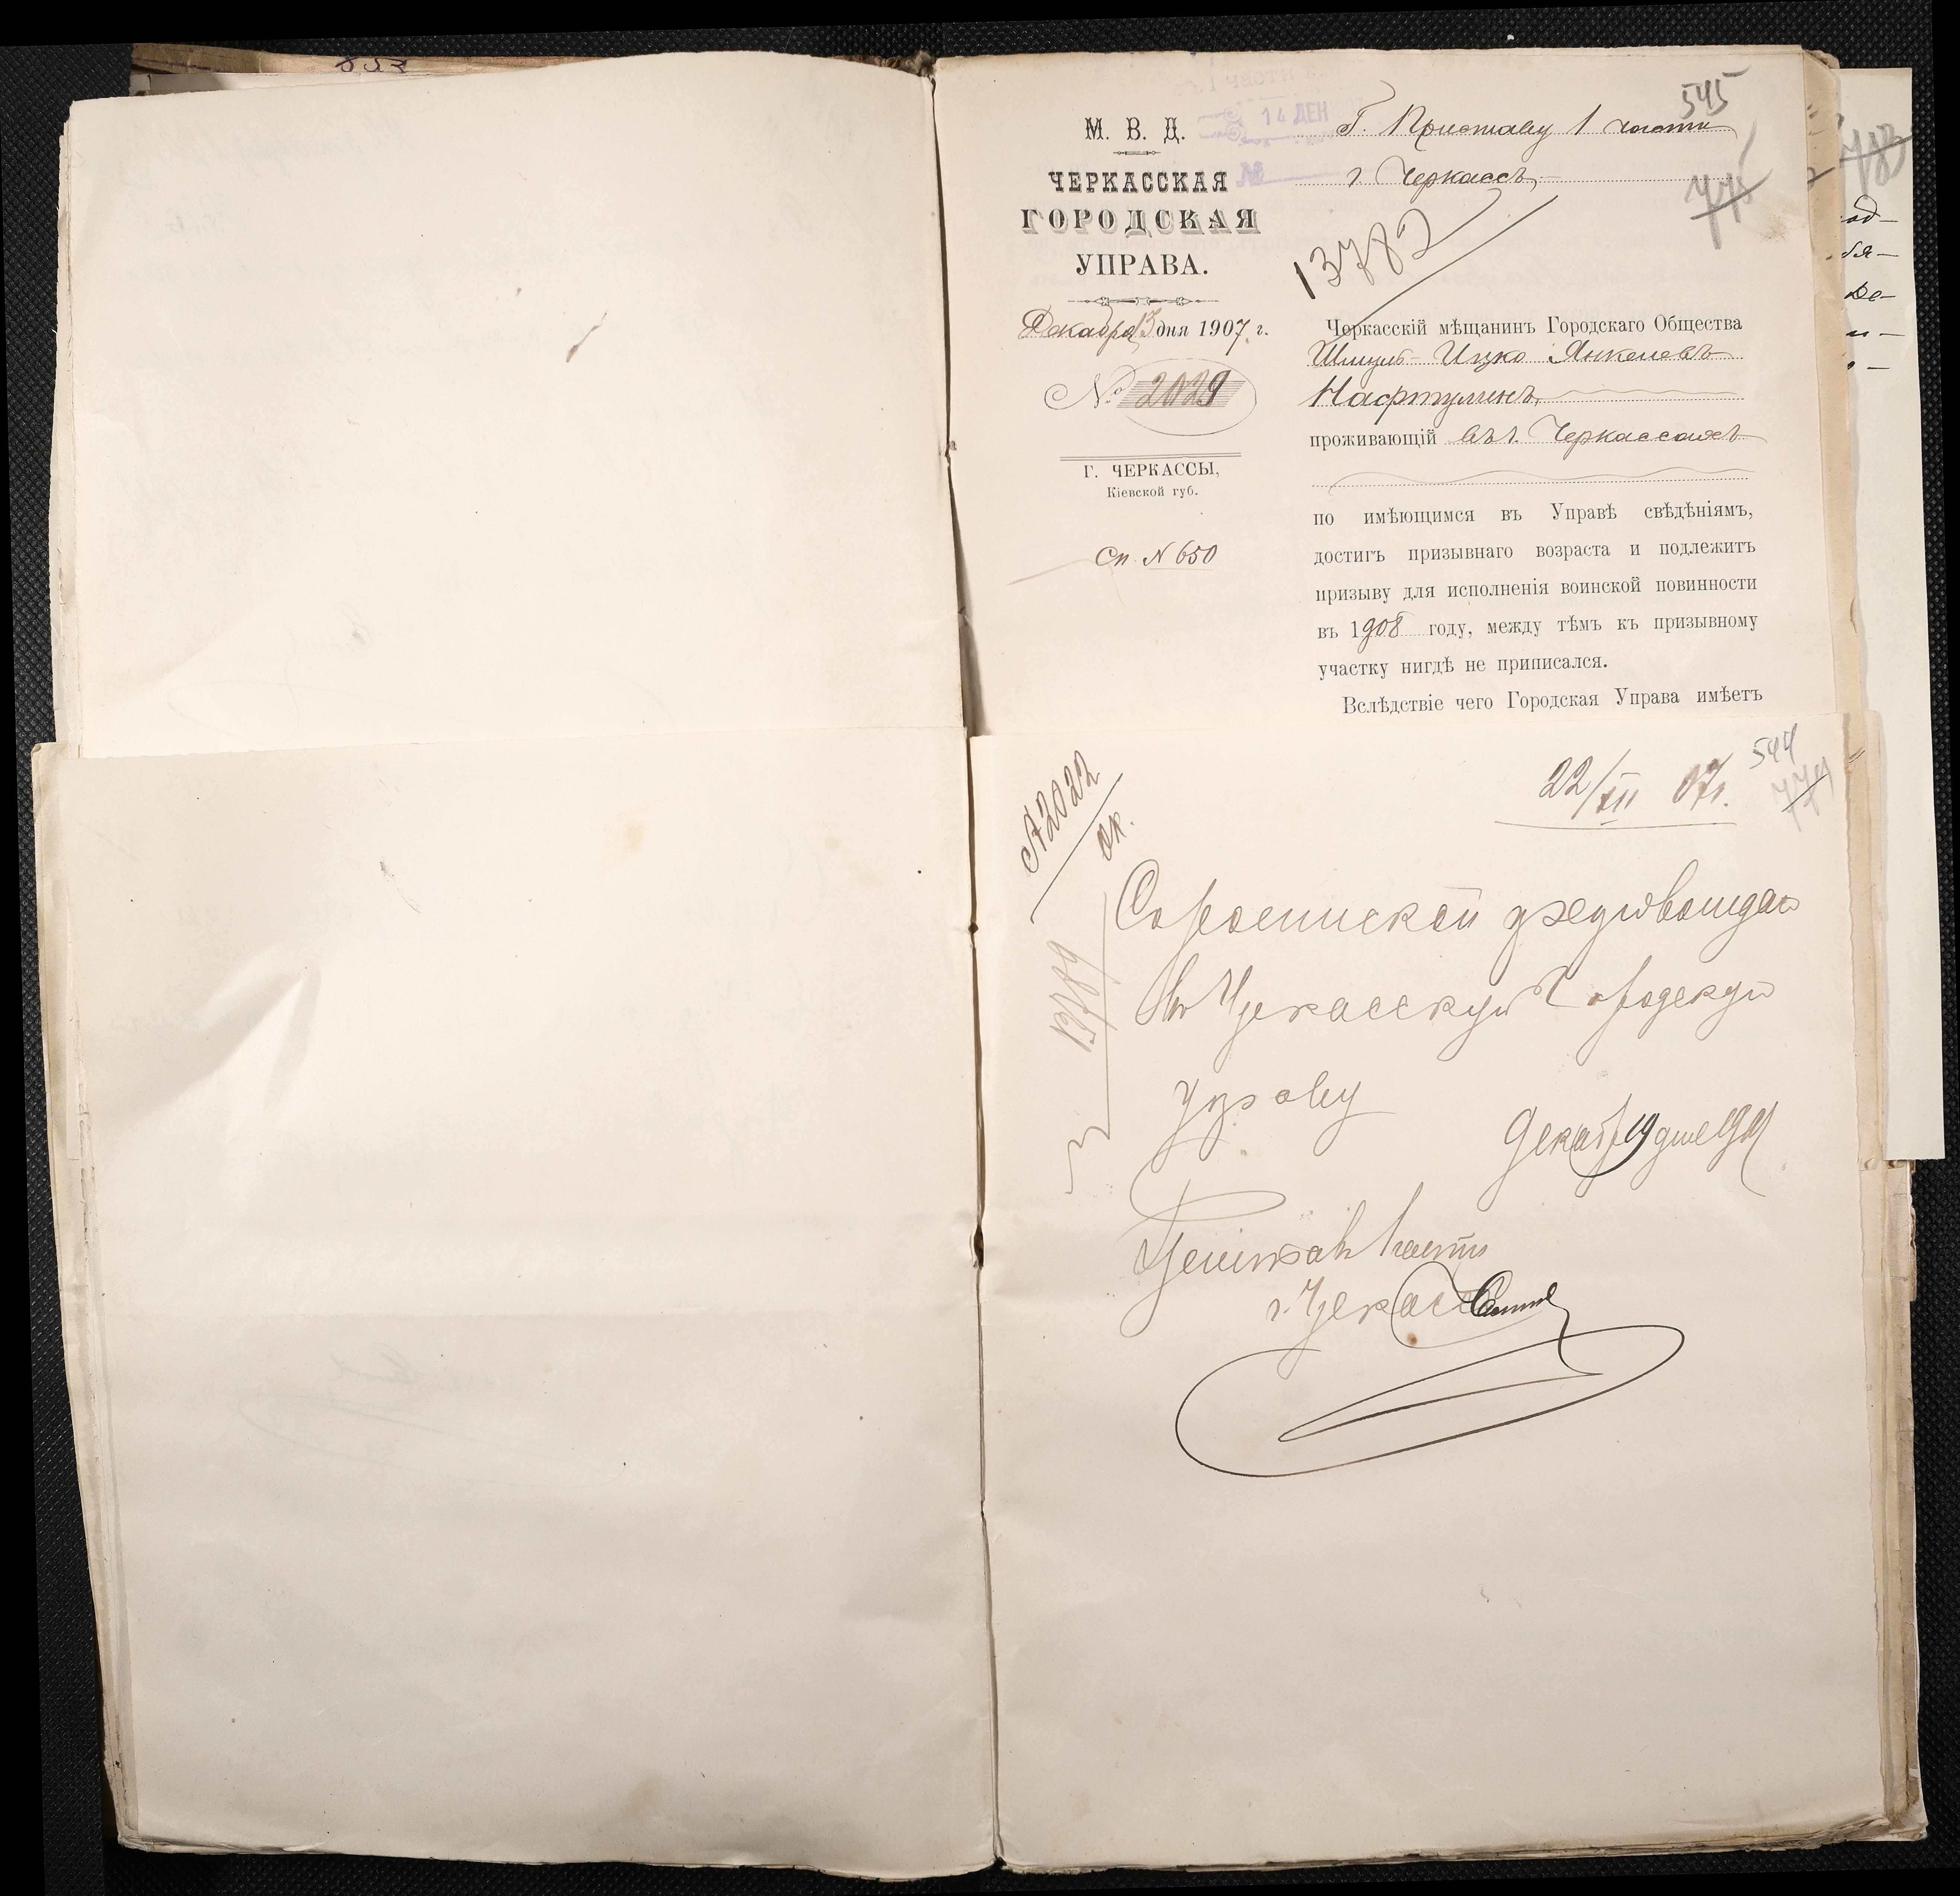 853
М. В. Д.
ЧЕРКАССКАЯ
ГОРОДСКАЯ
УПРАВА.
Декабря 13 дня 1907 г.
№ 2029
Г. ЧЕРКАССЫ,
Кіевской губ.
Сп. N 650
14 ДЕК
№
545
Г. Приставу 1 части
775
г. Черкассъ
13782
Черкасскій мѣщанинъ Городскаго Общества
Шмуль-Ицко Янкелевъ
Нафтулинъ,
проживающій въ г. Черкассахъ
по имѣющимся въ Управѣ свѣдѣніямъ,
достигъ призывнаго возраста и подлежитъ
призыву для исполненія воинской повинности
въ 1908 году, между тѣмъ къ призывному
участку нигдѣ не приписался.
Вслѣдствіе чего Городская Управа имѣетъ
783
544
774
22/XII 07г.
13789
Въ Черкасскую Городскую
Управу
Декабр 19 дня 1907
Приставъ 1 части
г. Черкассъ